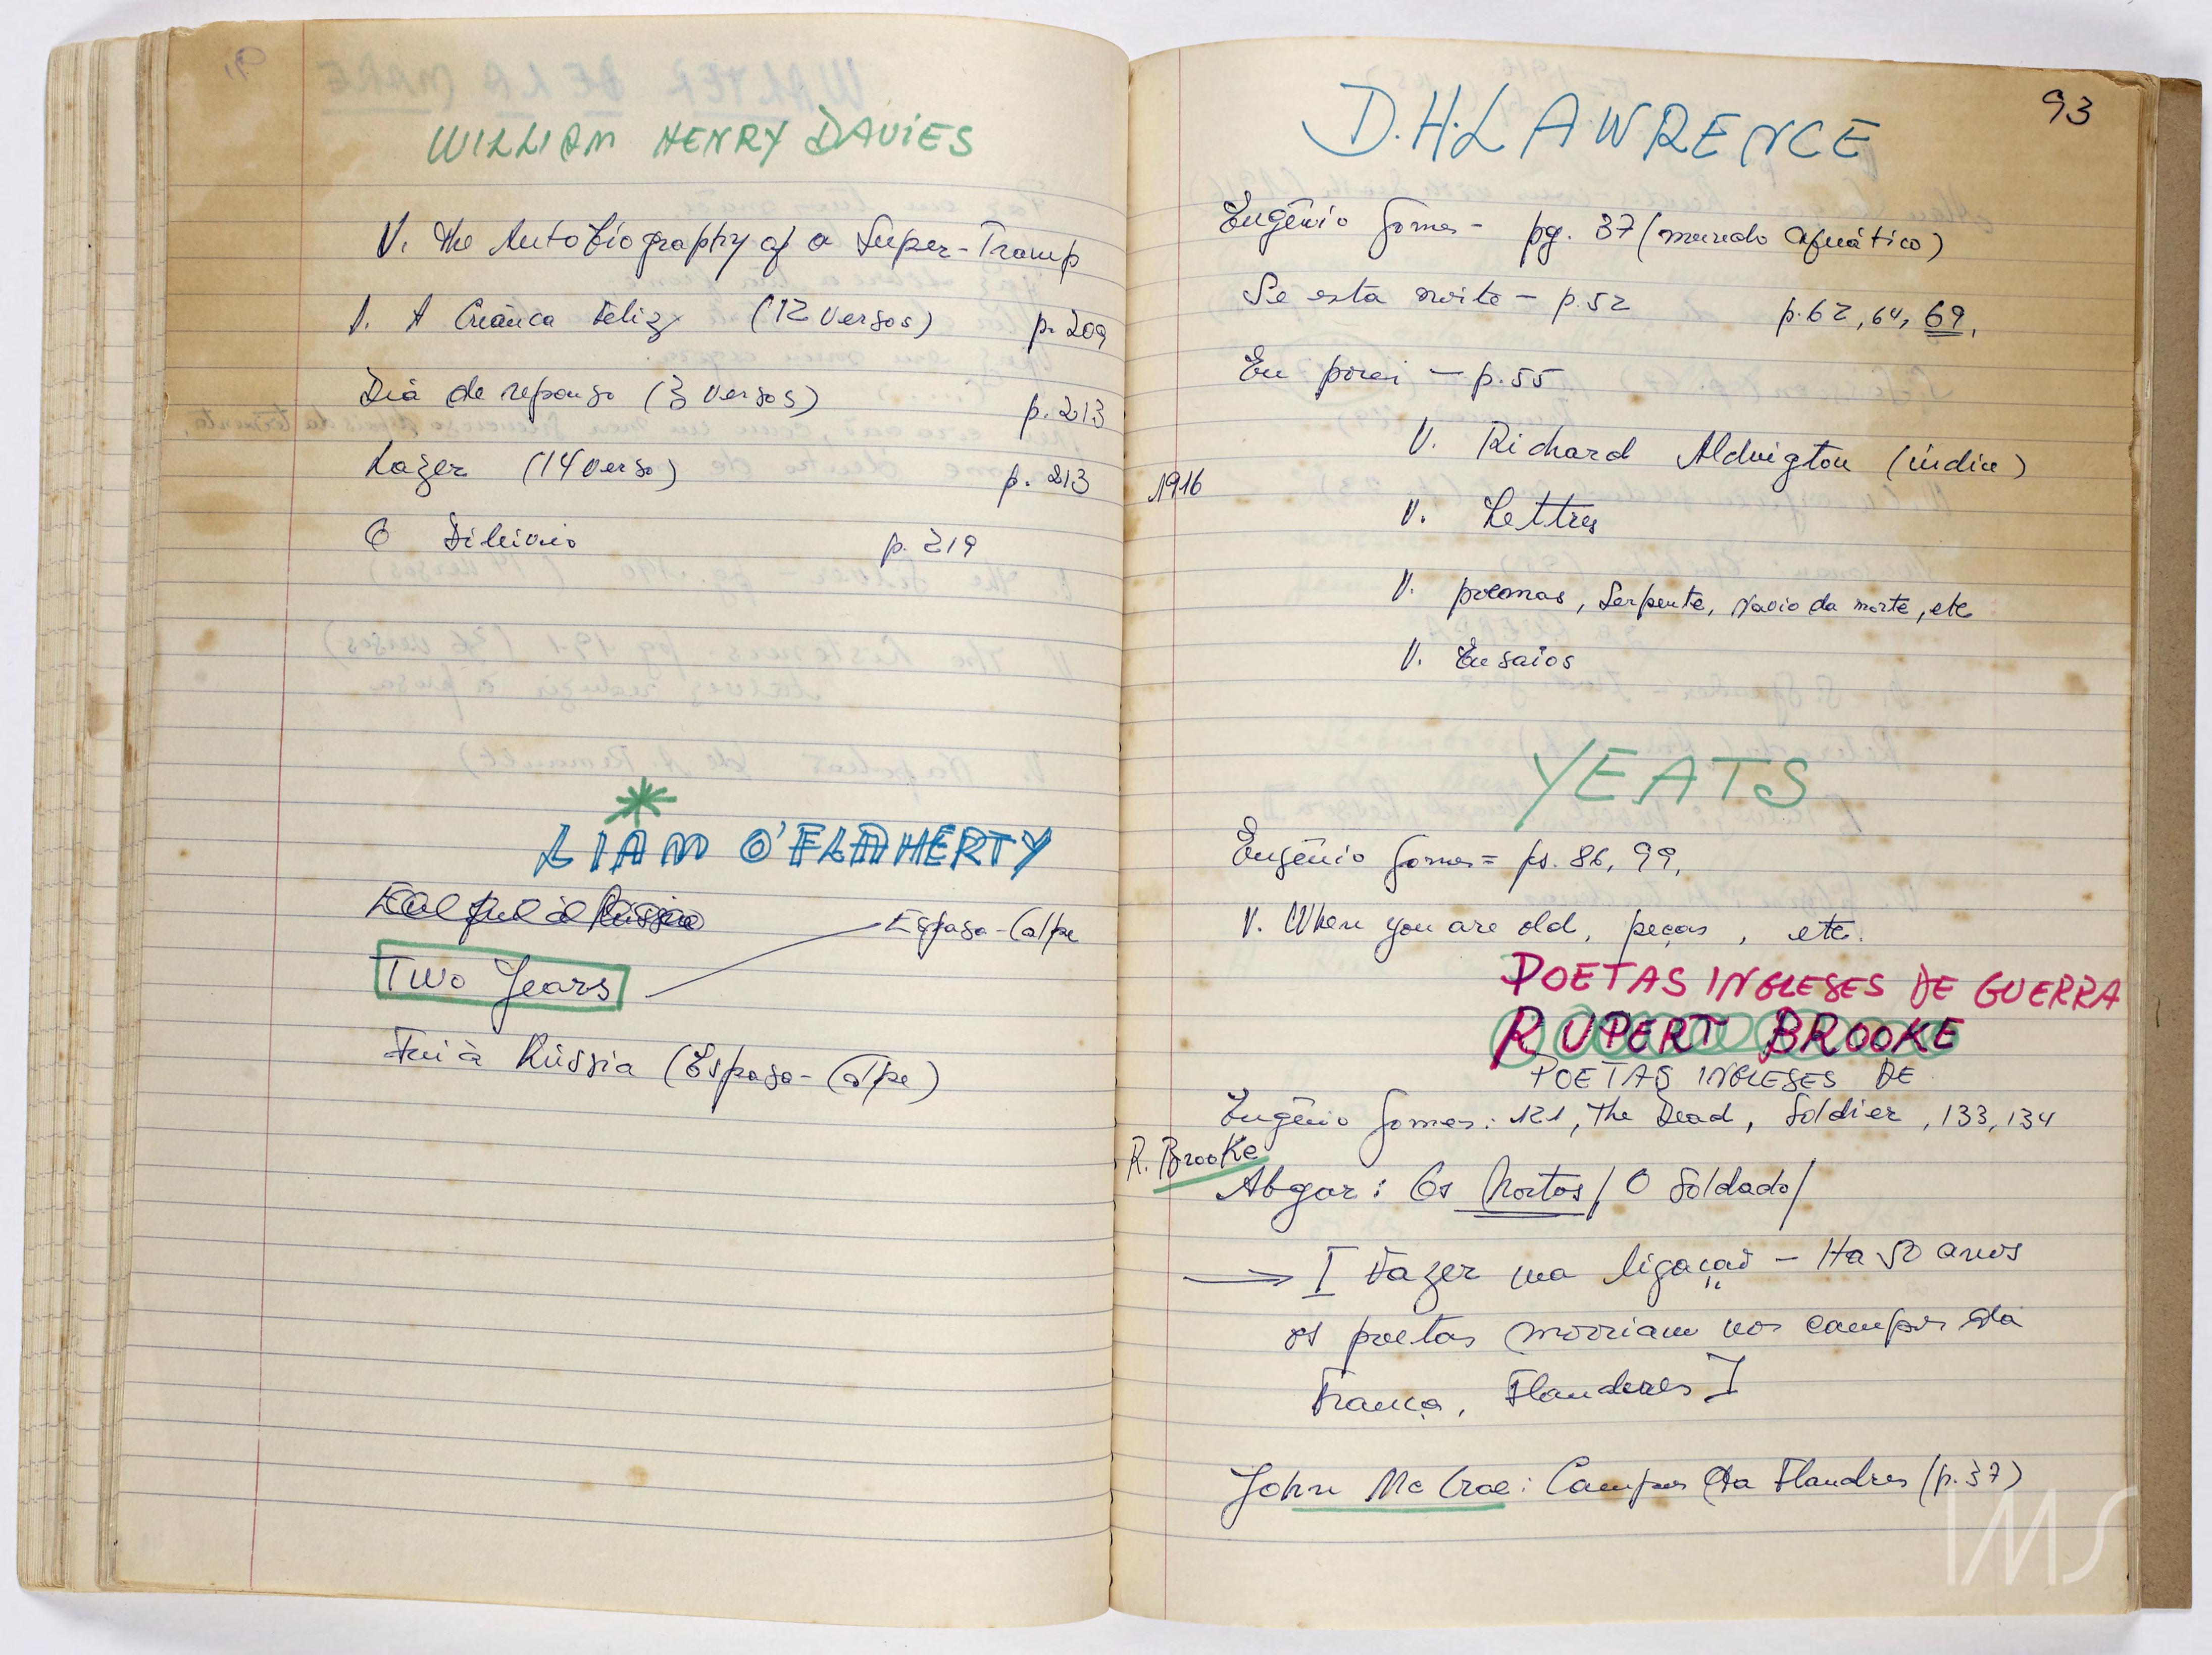 WILLIAM HENRY DAVIES
V. The Autobiography of a Super-Tramp
V. A Criança Feliz (12 versos) p. 209
Dia de repouso (3 versos) p. 213
Lazer (14 verso) p. 213
O Dilúvio p. 219
LIAM O'FLAHERTY
Espasa-Calpe
Two Years
Fui à Rússia (Espasa-Calpe)
93
D.H.LAWRENCE
Eugênio Gomes - pg. 37 (mundo aquático)
Se esta noite - p. 52 p. 62, 64, 69,
Eu porei - p. 55
V. Richard Aldington (índice)
1916
V. Lettres
V. poemas, Serpente, Navio da morte, etc
V. Ensaios
YEATS
Eugênio Gomes = ps. 86, 99,
V. When you are old, peças, etc.
POETAS INGLESES DE GUERRA
RUPERT BROOKE
POETAS INGLESES DE
Eugênio Gomes: 121, The Dead, Soldier, 133, 134
R. Brooke
Abgar: Os Mortos / O Soldado /
[ Fazer na ligação - Ha 50 anos
os poetas morriam nos campos da
França, Flanderes ]
John Mc Crae: Campos da Flandres (p. 37)
IMS